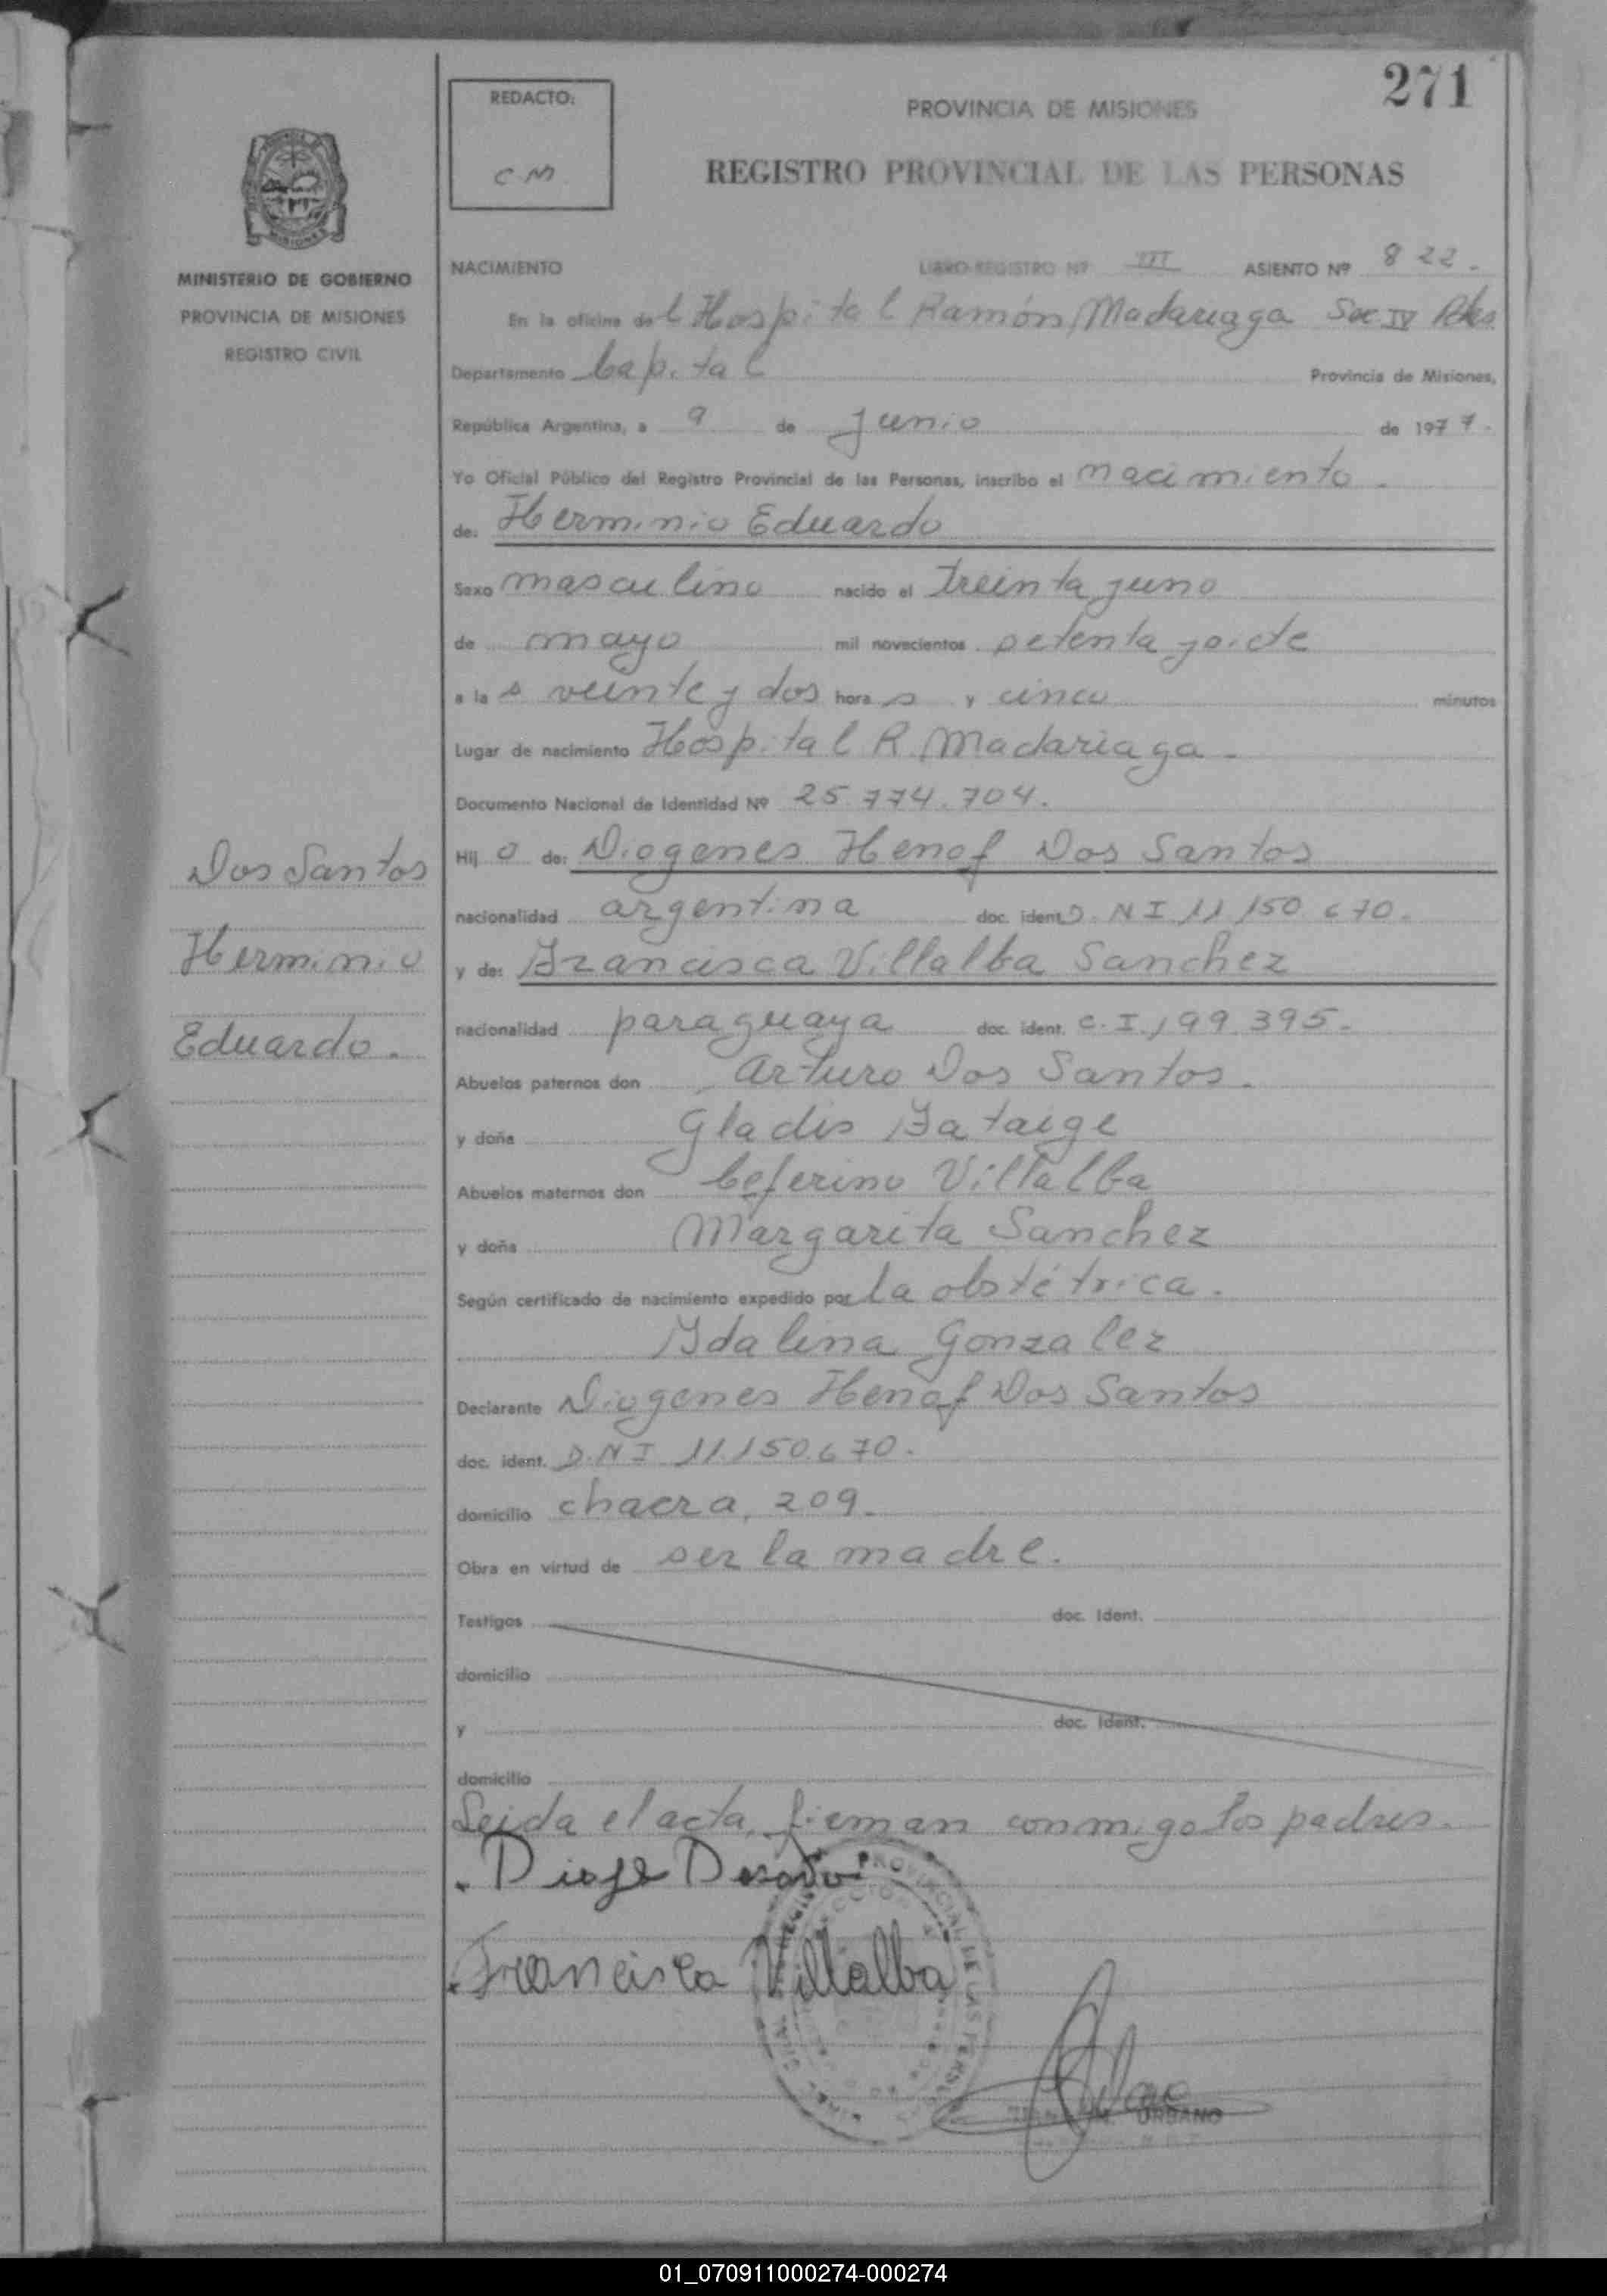 271
REDACTO:
C M
PROVINCIA DE MISIONES
REGISTRO PROVINCIAL DE LAS PERSONAS
MISIONES
MINISTERIO DE GOBIERNO
PROVINCIA DE MISIONES
REGISTRO CIVIL
NACIMIENTO LIBRO REGISTRO Nº III ASIENTO Nº 822.
En la oficina del Hospital Ramón Madariaga Sec IV Pdas
Departamento Capital Provincia de Misiones,
República Argentina, a 9 de junio de 1977.
Yo Oficial Público del Registro Provincial de las Personas, inscribo el nacimiento.
de: Herminio Eduardo
Sexo masculino nacido el treinta y uno
de mayo mil novecientos setenta y siete
a las veinte y dos horas y cinco minutos
Lugar de nacimiento Hospital R. Madariaga.
Documento Nacional de Identidad Nº 25.774.704.
Hijo de: Diogenes Henof Dos Santos
nacionalidad argentina doc. ident. D.N.I 11.150.670.
y de: Francisca Villalba Sanchez
nacionalidad paraguaya doc. ident. C.I. 199.395.
Abuelos paternos don Arturo Dos Santos.
y doña Gladis
Abuelos maternos don Ceferino Villalba
y doña Margarita Sanchez
Según certificado de nacimiento expedido por la obstétrica.
Idalina Gonzalez
Declarante Diogenes Henof Dos Santos
doc. ident. D.N.I 11.150.670.
domicilio chacra 209.
Obra en virtud de ser la madre.
Testigos doc. Ident.
domicilio
y doc. Ident.
domicilio
Leida el acta, firman conmigo los padres.
Francisca Villalba
URBANO
Dos Santos
Herminio
Eduardo.
01_070911000274-000274